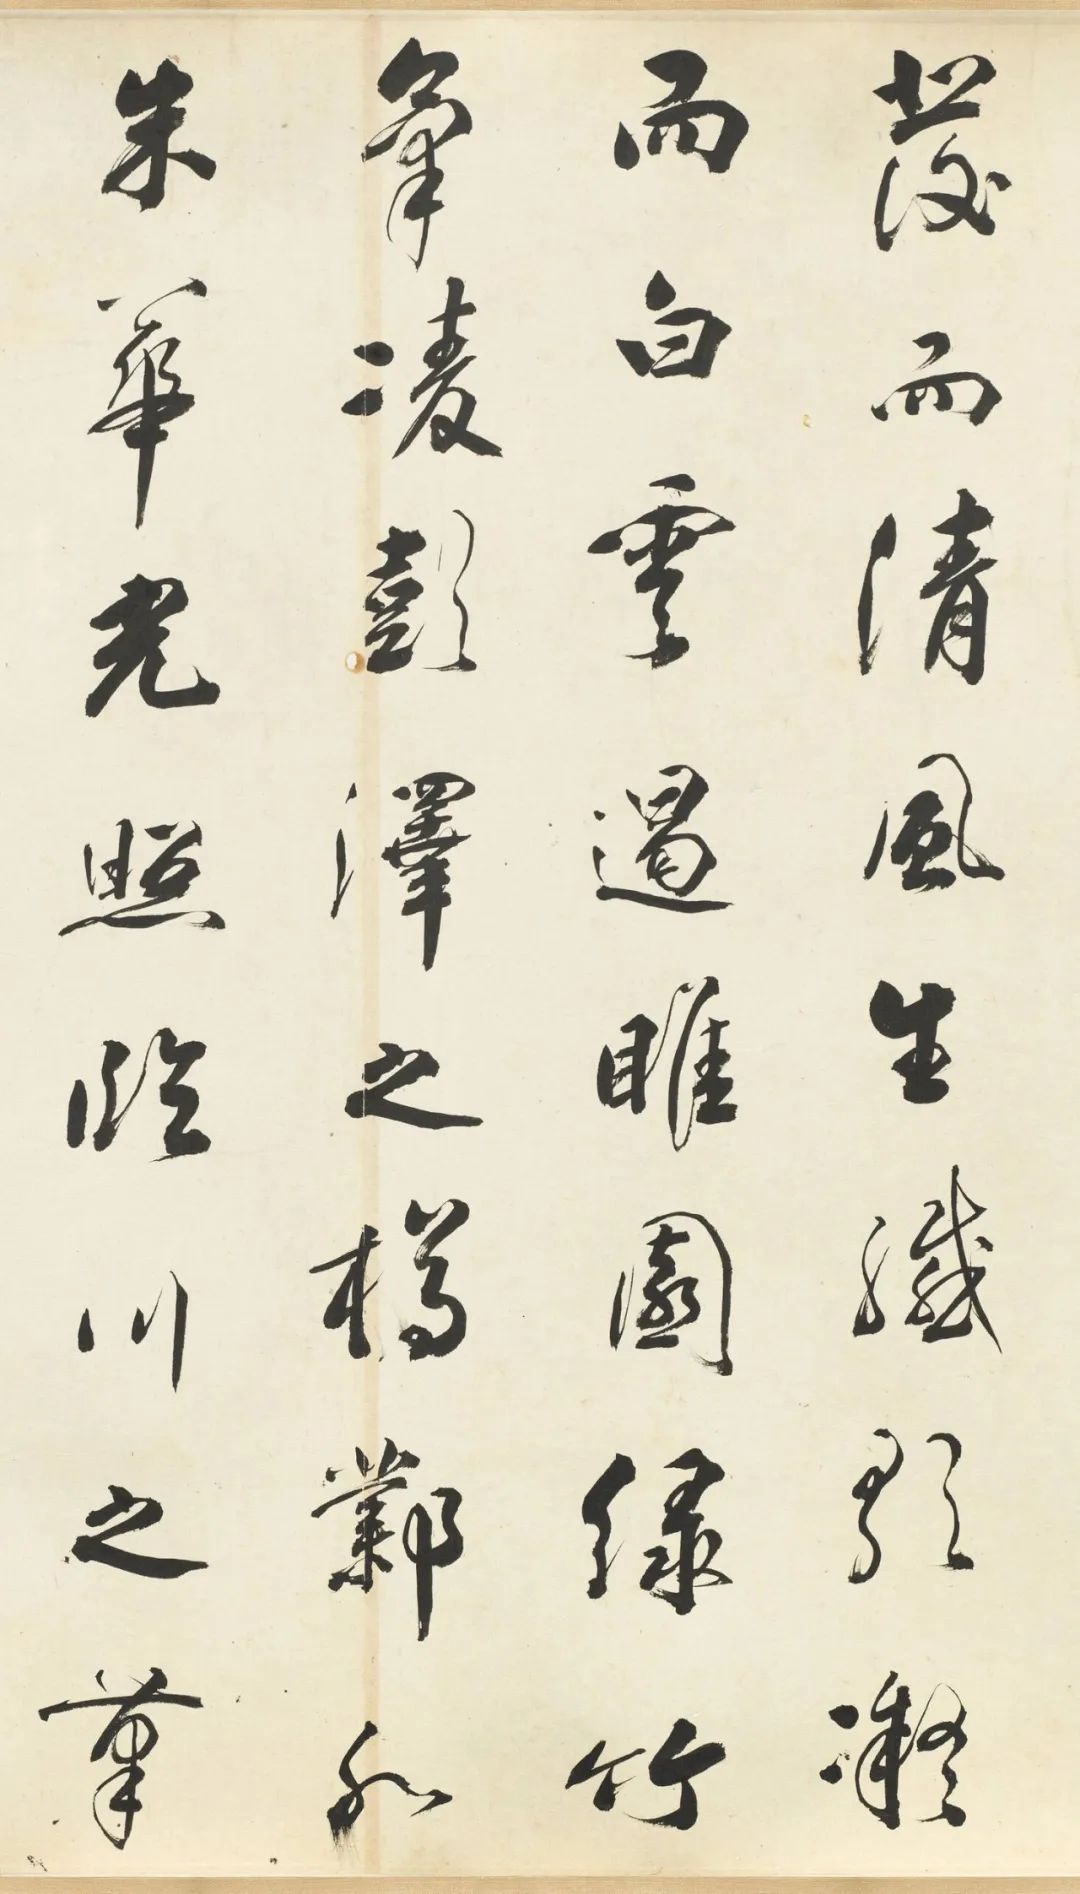 發而清風生纖歌凝
而白雲遏睢園綠竹
氣凌彭澤之樽鄴水
朱華光照臨川之筆